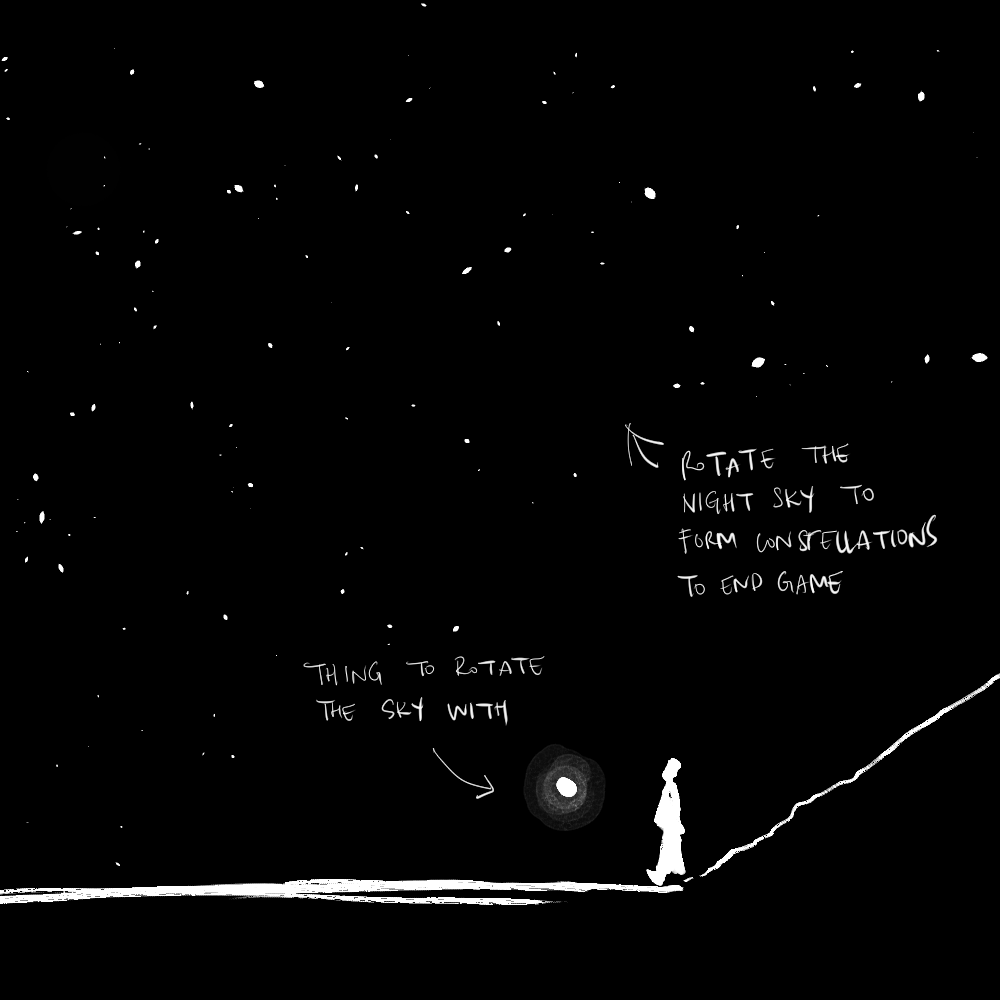 ROTATE THE
NIGHT SKY TO
FORM CONSTELLATIONS
TO END GAME
THING TO ROTATE
THE SKY WITH